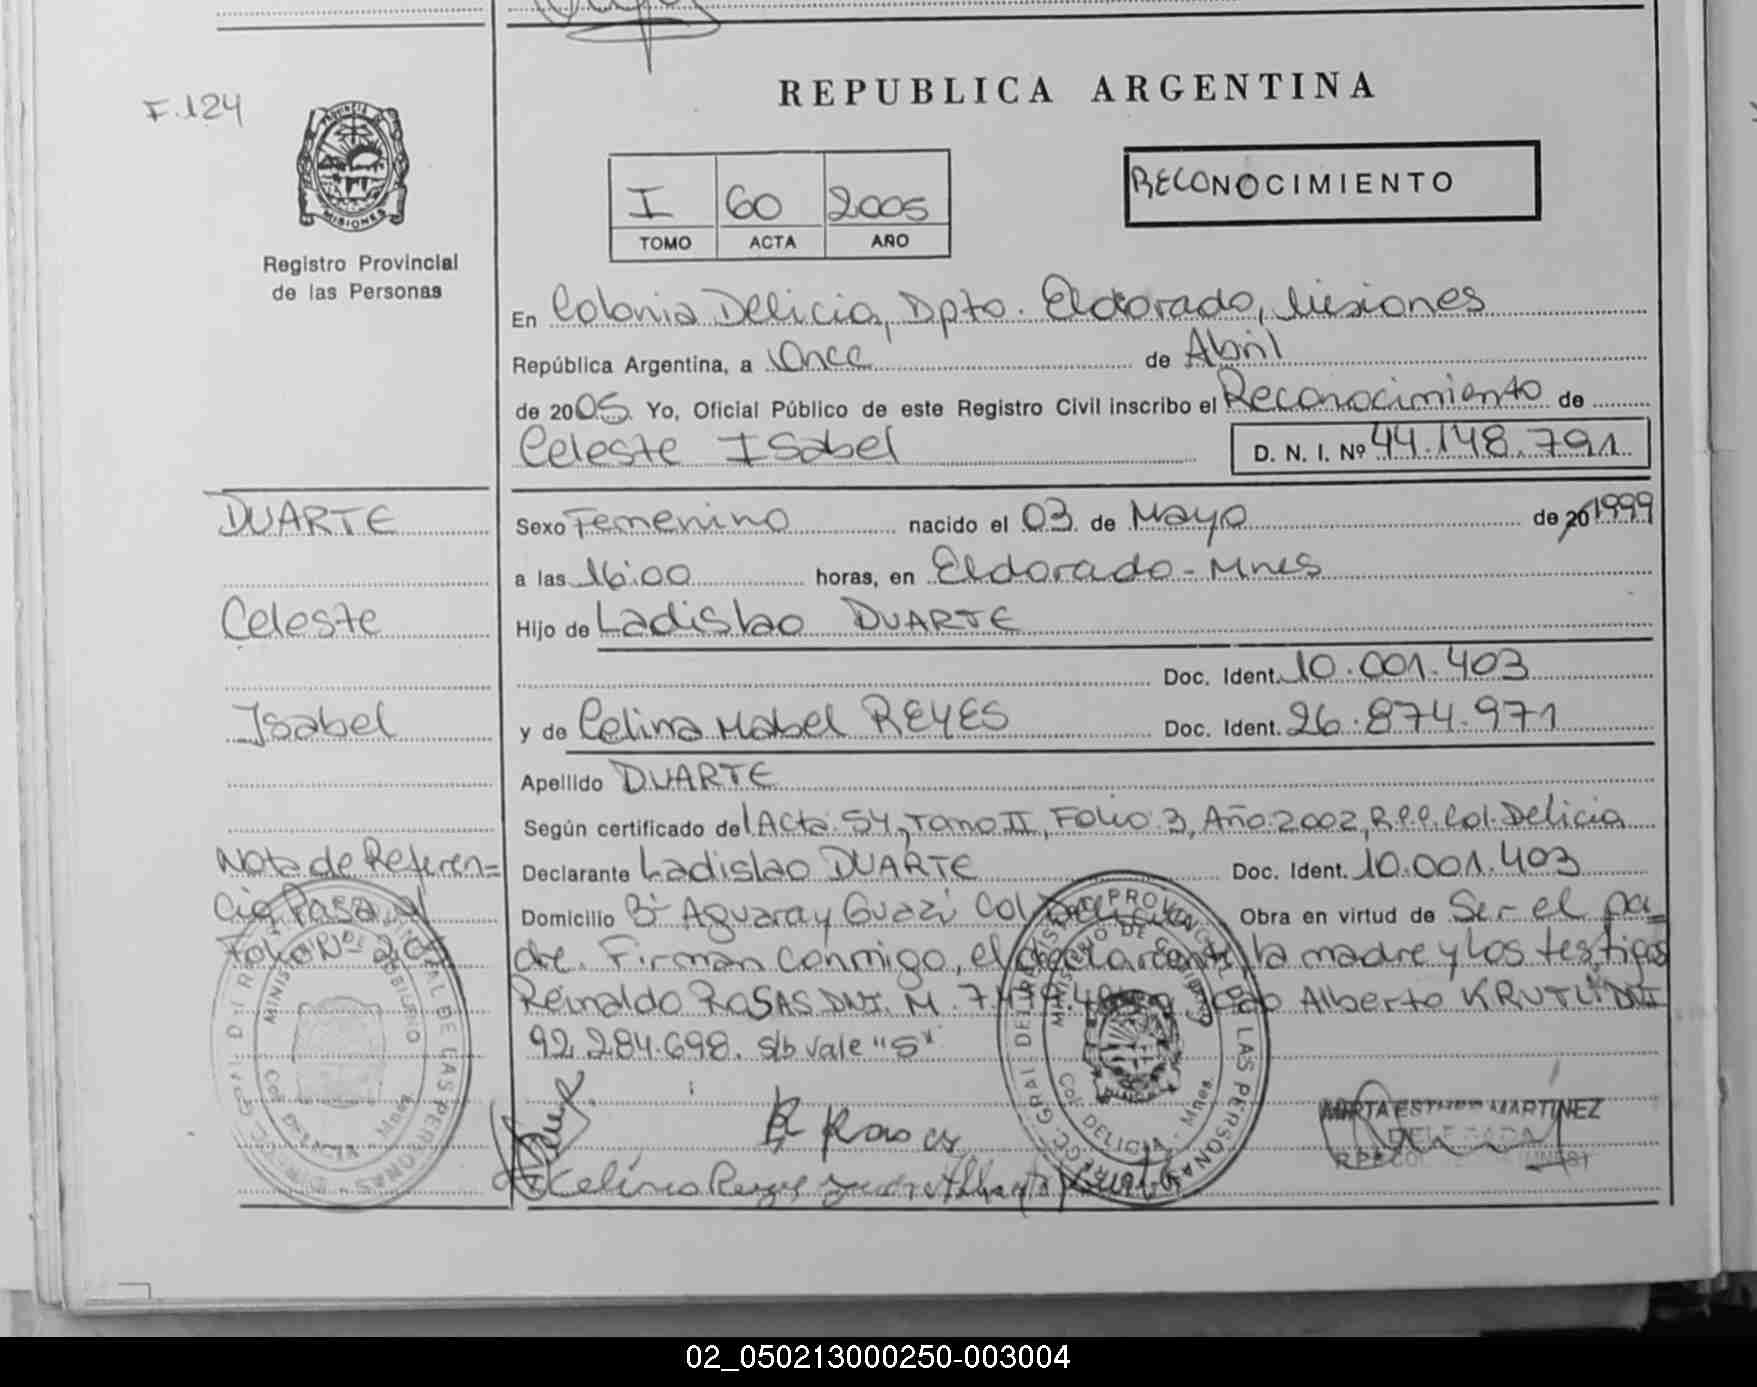 F.124
PROVINCIA
MISIONES
Registro Provincial
de las Personas
REPUBLICA ARGENTINA
I 60 2005
TOMO ACTA AÑO
RECONOCIMIENTO
En Colonia Delicia, Dpto. Eldorado, Misiones
República Argentina, a Once de Abril
de 2005 Yo, Oficial Público de este Registro Civil inscribo el Reconocimiento de
Celeste ISabel D. N. I. Nº 44.148.791
DUARTE
Sexo Femenino nacido el 03 de Mayo de 20 1999
a las 16:00 horas, en Eldorado - Mnes
Celeste
Hijo de Ladislao DUARTE
Doc. Ident. 10.001.403
Isabel
y de Celina Mabel REYES Doc. Ident. 26.874.971
Apellido DUARTE
Según certificado del Acta 54, Tomo II, Folio 3, Año 2002, R.P.P. Col. Delicia
Nota de Referen=
Declarante Ladislao DUARTE Doc. Ident. 10.001.403
cia Pasa al
Domicilio Bº Aguaray Guazú Col Delicia Obra en virtud de Ser el pa_
Folio Nº
dre. Firman conmigo, el declarante, la madre y los testigos
Reinaldo ROSAS DNI. M. Alberto KRUTLI DNI
92.284.698. s/b vale "S"
R Rosas
Celina Reyes
MIRTA ESTHER MARTINEZ
DELEGADA
COL. DELICIA - Mnes.
02_050213000250-003004